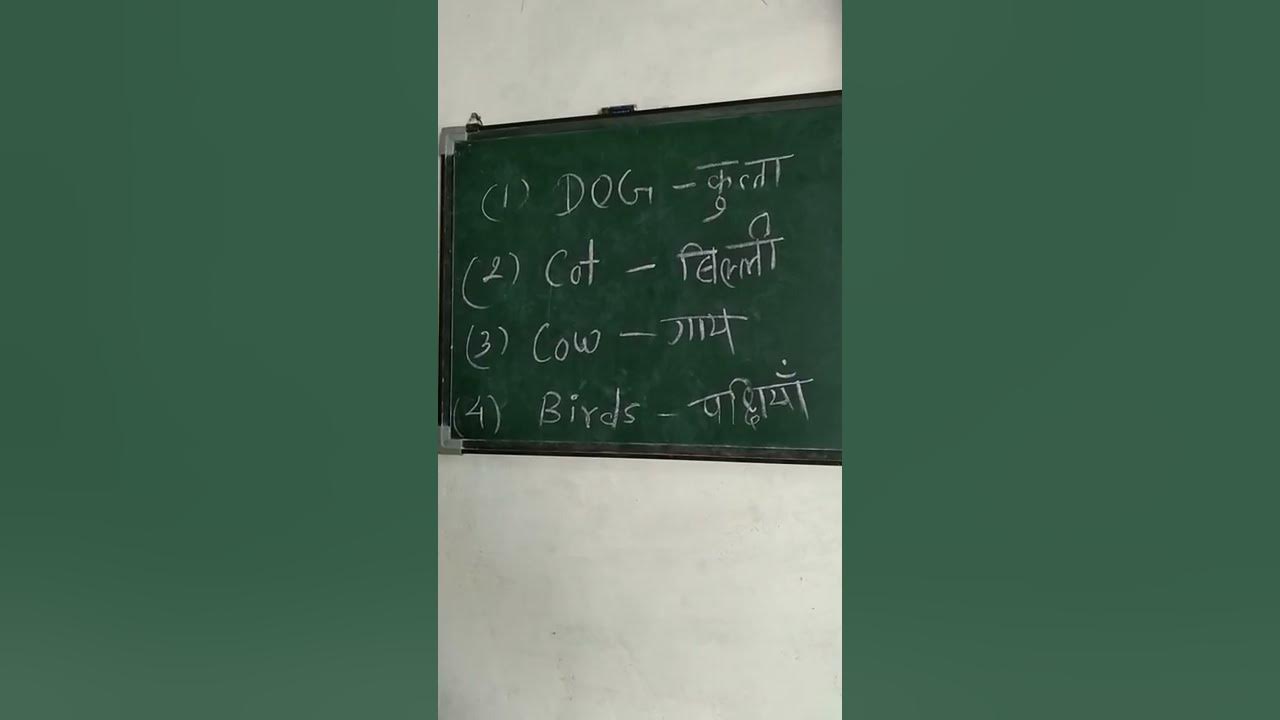 (1) DOG - कुत्ता
(2) Cot - बिल्ली
(3) Cow - गाय
(4) Birds - पक्षियाँ